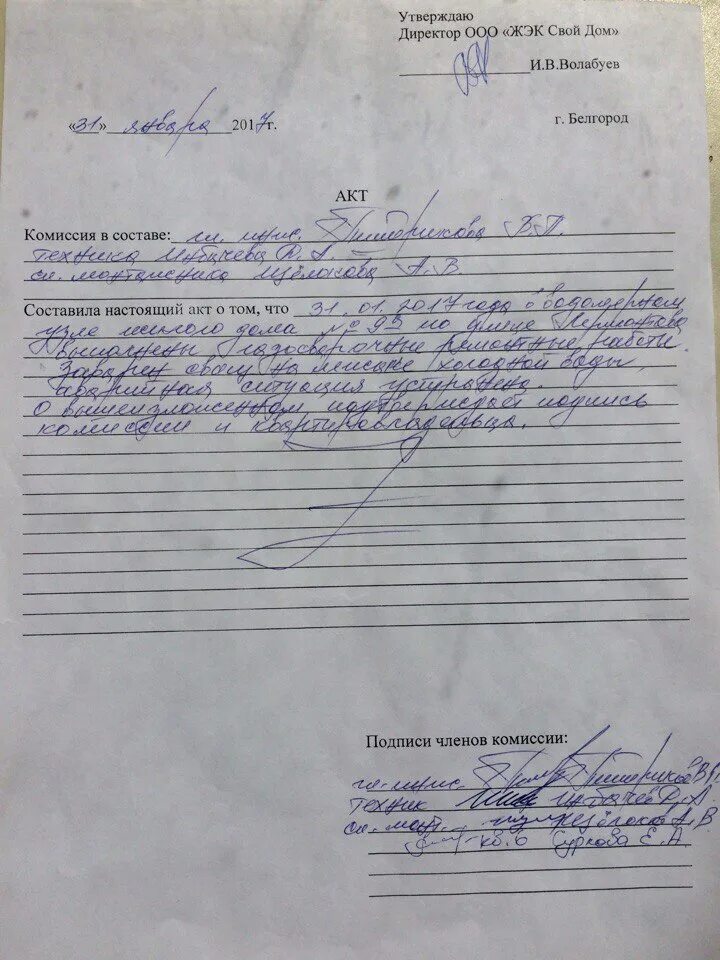 Утверждаю
Директор ООО «ЖЭК Свой Дом»
И.В.Волабуев
«31» января 2017г.
г. Белгород
АКТ
Комиссия в составе: гл. инж. В.П.
техника Д.А.
сл. монтажника А.В.
Составила настоящий акт о том, что 31.01.2017 года в водомерном
узле жилого дома № 95 по улице Лермонтова
выполнены газосварочные ремонтные работы.
Заварен свищ на лежаке холодной воды,
аварийная ситуация устранена.
О вышеизложенном, подтверждает подпись
комиссии и квартировладельца.
Подписи членов комиссии:
гл. инж.
техник Д.А.
сл. монт. А.В.
кв. 6 Суркова Е.А